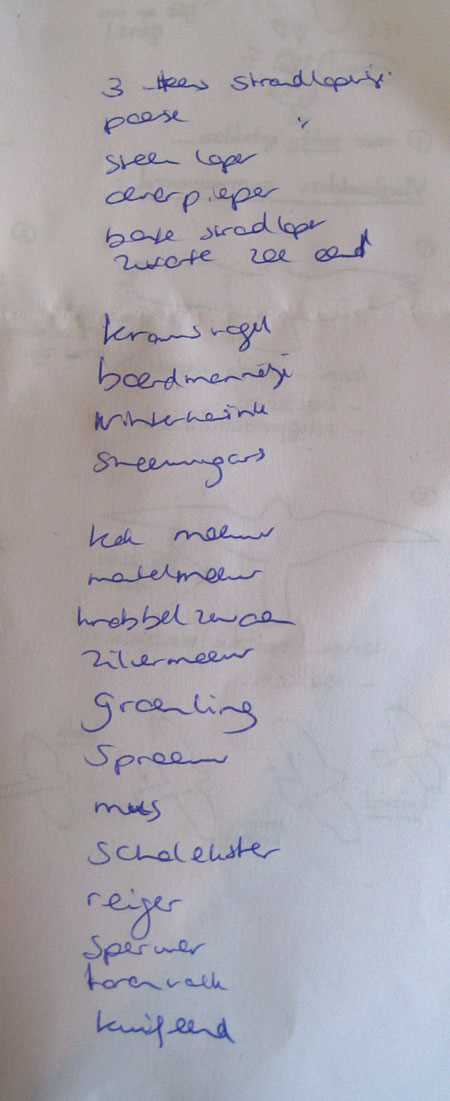 3 teen strandlopertje
paarse "
steen loper
oeverpieper
bonte strandloper
zwarte zee eend
kramsvogel
baardmannetje
winterkonink
sneeuwgors
kok meeuw
mantelmeeuw
knobbelzwaan
zilvermeeuw
groenling
spreeuw
mus
scholekster
reiger
sperwer
torenvalk
kuifeend